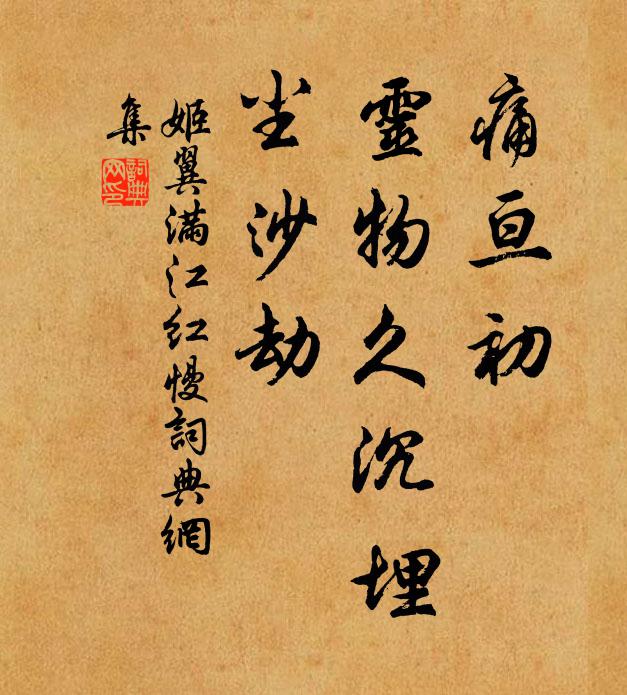 痛亘初
靈物久沉埋
尘沙劫
姬翼满江红慢詞典網
集
詞典網印